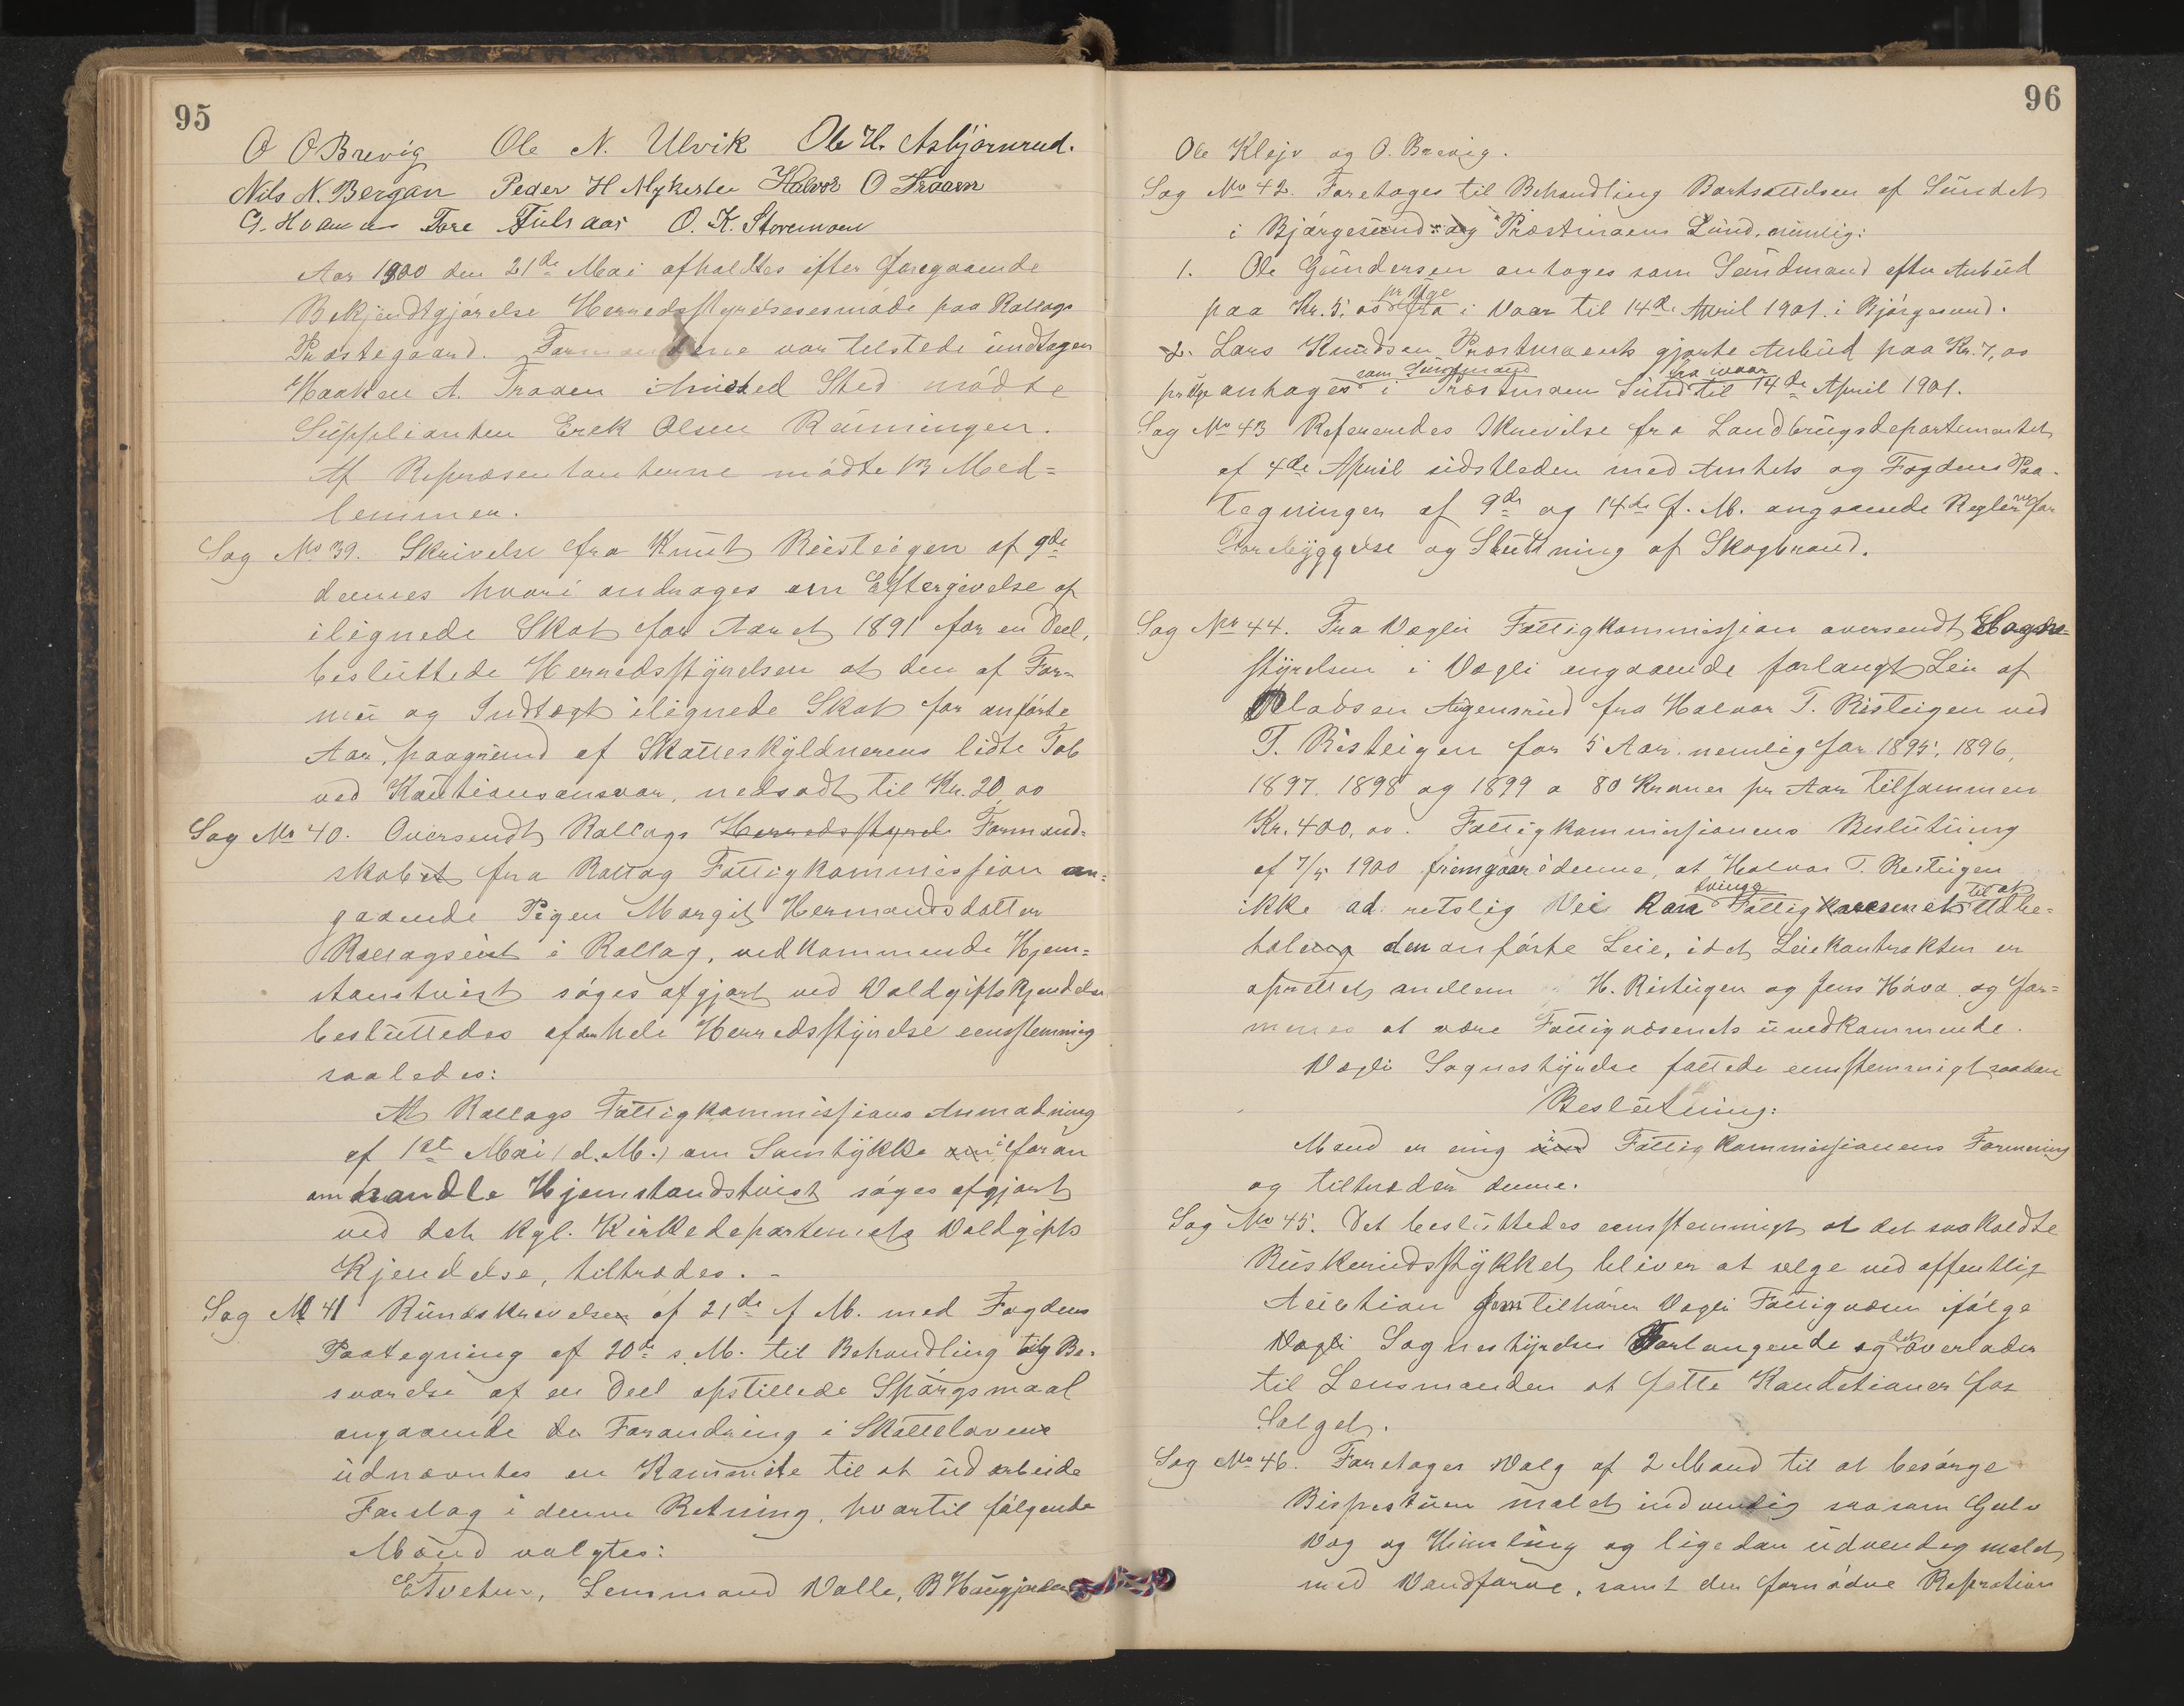 95
O O Brevig Ole N. Ulvik Ole H. Asbjørnrud.
Nils N. Bergan Peder H Mykerlee Halvor O Traaen
G. Hvamm Tore Fulsaas O. K. Storemoen
Aar 1900 den 21de Mai afholdtes efter foregaaende
Bekjendtgjørelse Herredsstyrelsesmøde paa Rollags
Præstegaard. Formændene var tilstede undtagen
Haaken A. Traaen i hvis Sted mødte
Supplianten Erek Olsen Rünningen.
Af Repræsentanterne mødte 13 Med=
lemmer.
Sag No 39. Skrivelse fra Knut Risteigen af 9de
dennes hvori andrages om Eftergivelse af
ilignede Skat for Aaret 1891 for en Deel,
besluttede Herredsstyrelsen at den af For-
mue og Indtægt ilignede Skat for anførte
Aar, paagrund af Skatteskyldnerens lidte Tab
ved Kautionsansvar, nedsadt til Kr. 20,00
Sag No 40. Oversendt Rollags Herredsstyrel Formand=
skabet fra Rollag Fattigkommission an=
gaaende Pigen Margit Hermandsdatter
Rollagseiet i Rollag, vedkommende Hjem=
stavnstvist søges afgjort ved Voldgiftskjendelse
besluttedes af den hele Herredsstyrelse eensstemmig
saaledes:
At Rollags Fattigkommissions Anmodning
af 1ste Mai (d. M.) om Samtykke i foran
omhandle Hjemstandstvist søges afgjort
ved det Kgl. Kirkedepartements Voldgifts
Kjendelse, tiltrædes. -
Sag No 41 Rundskrivelsen af 21de f M. med Fogdens
Paategning af 20de s. M. til Behandling og Be-
svarelse af en Deel opstillede Spørgsmaal
angaaende de Forandring i Skattelovene
udnævntes en Kommite til at udarbeide
Forslag i denne Retning, hvortil følgende
Mænd valgtes:
E Tveten, Lensmand Valle, B Haugjorden
96
Ole Klejv og O. Brevig.
Sag No 42. Foretoges til Behandling Bortsættelsen af Sundet
i Bjørgesund og Præstmoens Sund, nemlig:
1. Ole Gundersen antoges som Sundmand efter Anbud
paa Kr. 5,00 pr Uge fra i Vaar til 14de April 1901 i Bjørgesund.
2. Lars Knudsen Præstmoens gjorte Anbud paa Kr. 7,00
pr Uge antoges som Sundmand i Præstmoen Sund fra ivaar til 14de April 1901.
Sag No 43 Refereredes Skrivelse fra Landbrugsdepartementet
af 4de April sidstleden med Amtets og Fogdens Paa-
tegninger af 9de og 14de f. M. angaaende Reglerne for
Forebyggelse og Slukning af Skogbrand.
Sag No 44. Fra Vægli Fattigkommission oversendt Sogne-
styrelsen i Vægli angaaende forlangt Leie af
Pladsen Aygensrud fra Halvor T. Risteigen ved
T. Risteigen for 5 Aar nemlig for 1895, 1896,
1897. 1898 og 1899 a 80 Kroner pr Aar tilsammen
Kr. 400,00. Fattigkommissionens Beslutning
af 7/5 1900 fremgaar i denne, at Halvor T. Risteigen
ikke ad retslig Vei kan tvinge Fattigkarsenet til at udbe=
tale den anførte Leie, idet Leiekontrakten er
oprettet mellem H. Risteigen og Jens Høva og for=
menes at være Fattigvæsenets uvedkommende.
Vægli Sognestyrelse fattede eensstemmigt saadan
Beslutning:
Mand er enig i Fattigkommissionens Formening
og tiltræder denne.
Sag No 45. Det besluttedes eensstemmigt at det saakaldte
Ruskerudsstykket bliver at sælge ved offentlig
Auction som tilhører Vægli Fattigvæsen ifølge
Vægli Sognestyrelses Forlangende og det overlades
til Lensmanden at sætte Konditioner for
Salget.
Sag No 46. Foretoges Valg af 2 Mand til at besørge
Bispestuen malet indvendig saasom Gulv
Væg og Himling og ligedan udvendig malet
med Vandfarve, samt den fornødne Repration